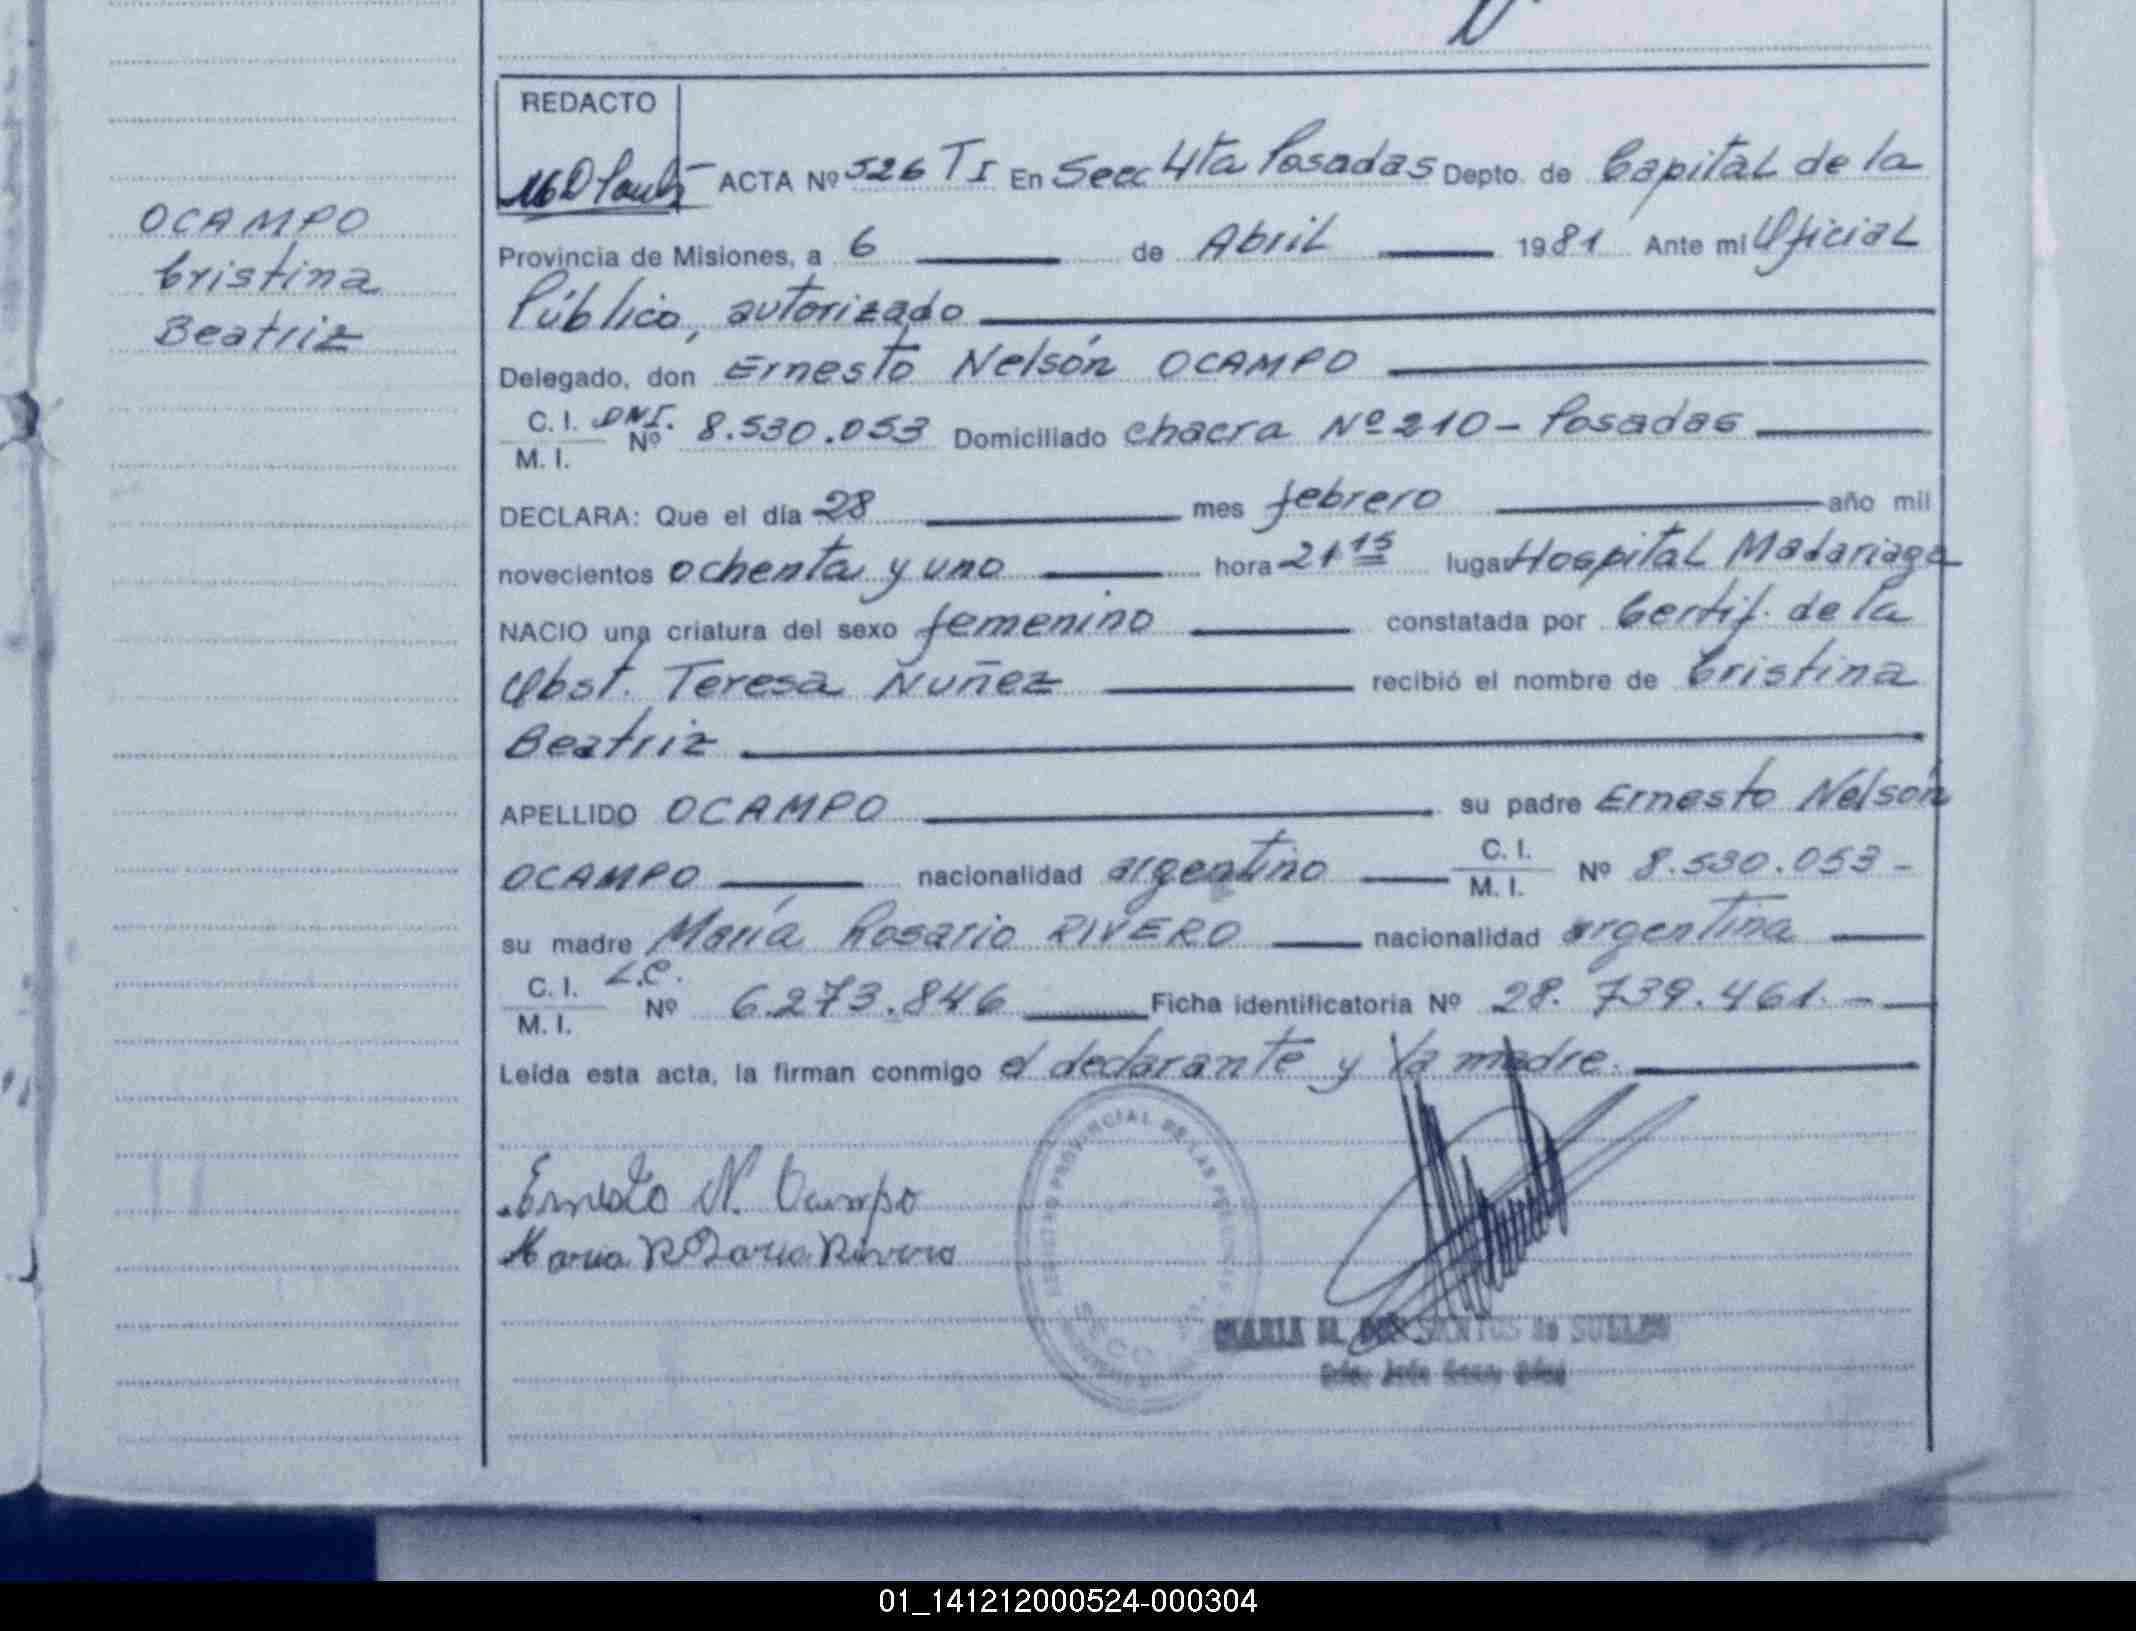 REDACTO
ACTA Nº 526 TI En Secc 4ta Posadas Depto. de Capital de la
OCAMPO
Cristina
Beatriz
Provincia de Misiones, a 6 de Abril 1981 Ante mi Oficial
Público, autorizado
Delegado, don Ernesto Nelsón OCAMPO
C. I. DNI.
M. I. Nº 8.530.053 Domiciliado chacra Nº 210 - Posadas
DECLARA: Que el día 28 mes febrero año mil
novecientos ochenta y uno hora 21 15 lugar Hospital Madariaga
NACIO una criatura del sexo femenino constatada por Certif. de la
Obst. Teresa Nuñez recibió el nombre de Cristina
Beatriz
APELLIDO OCAMPO su padre Ernesto Nelsón
OCAMPO nacionalidad argentino C. I. M. I. Nº 8.530.053 -
su madre María Rosario RIVERO nacionalidad argentina
C. I. L.C.
M. I. Nº 6.273.846 Ficha identificatoria Nº 28.739.461. -
Leída esta acta, la firman conmigo el declarante y la madre.
Ernesto N. Ocampo
Maria Rosario Rivero
REGISTRO PROVINCIAL DE LAS PERSONAS
SECC
MARIA M. DOS SANTOS de
01_141212000524-000304